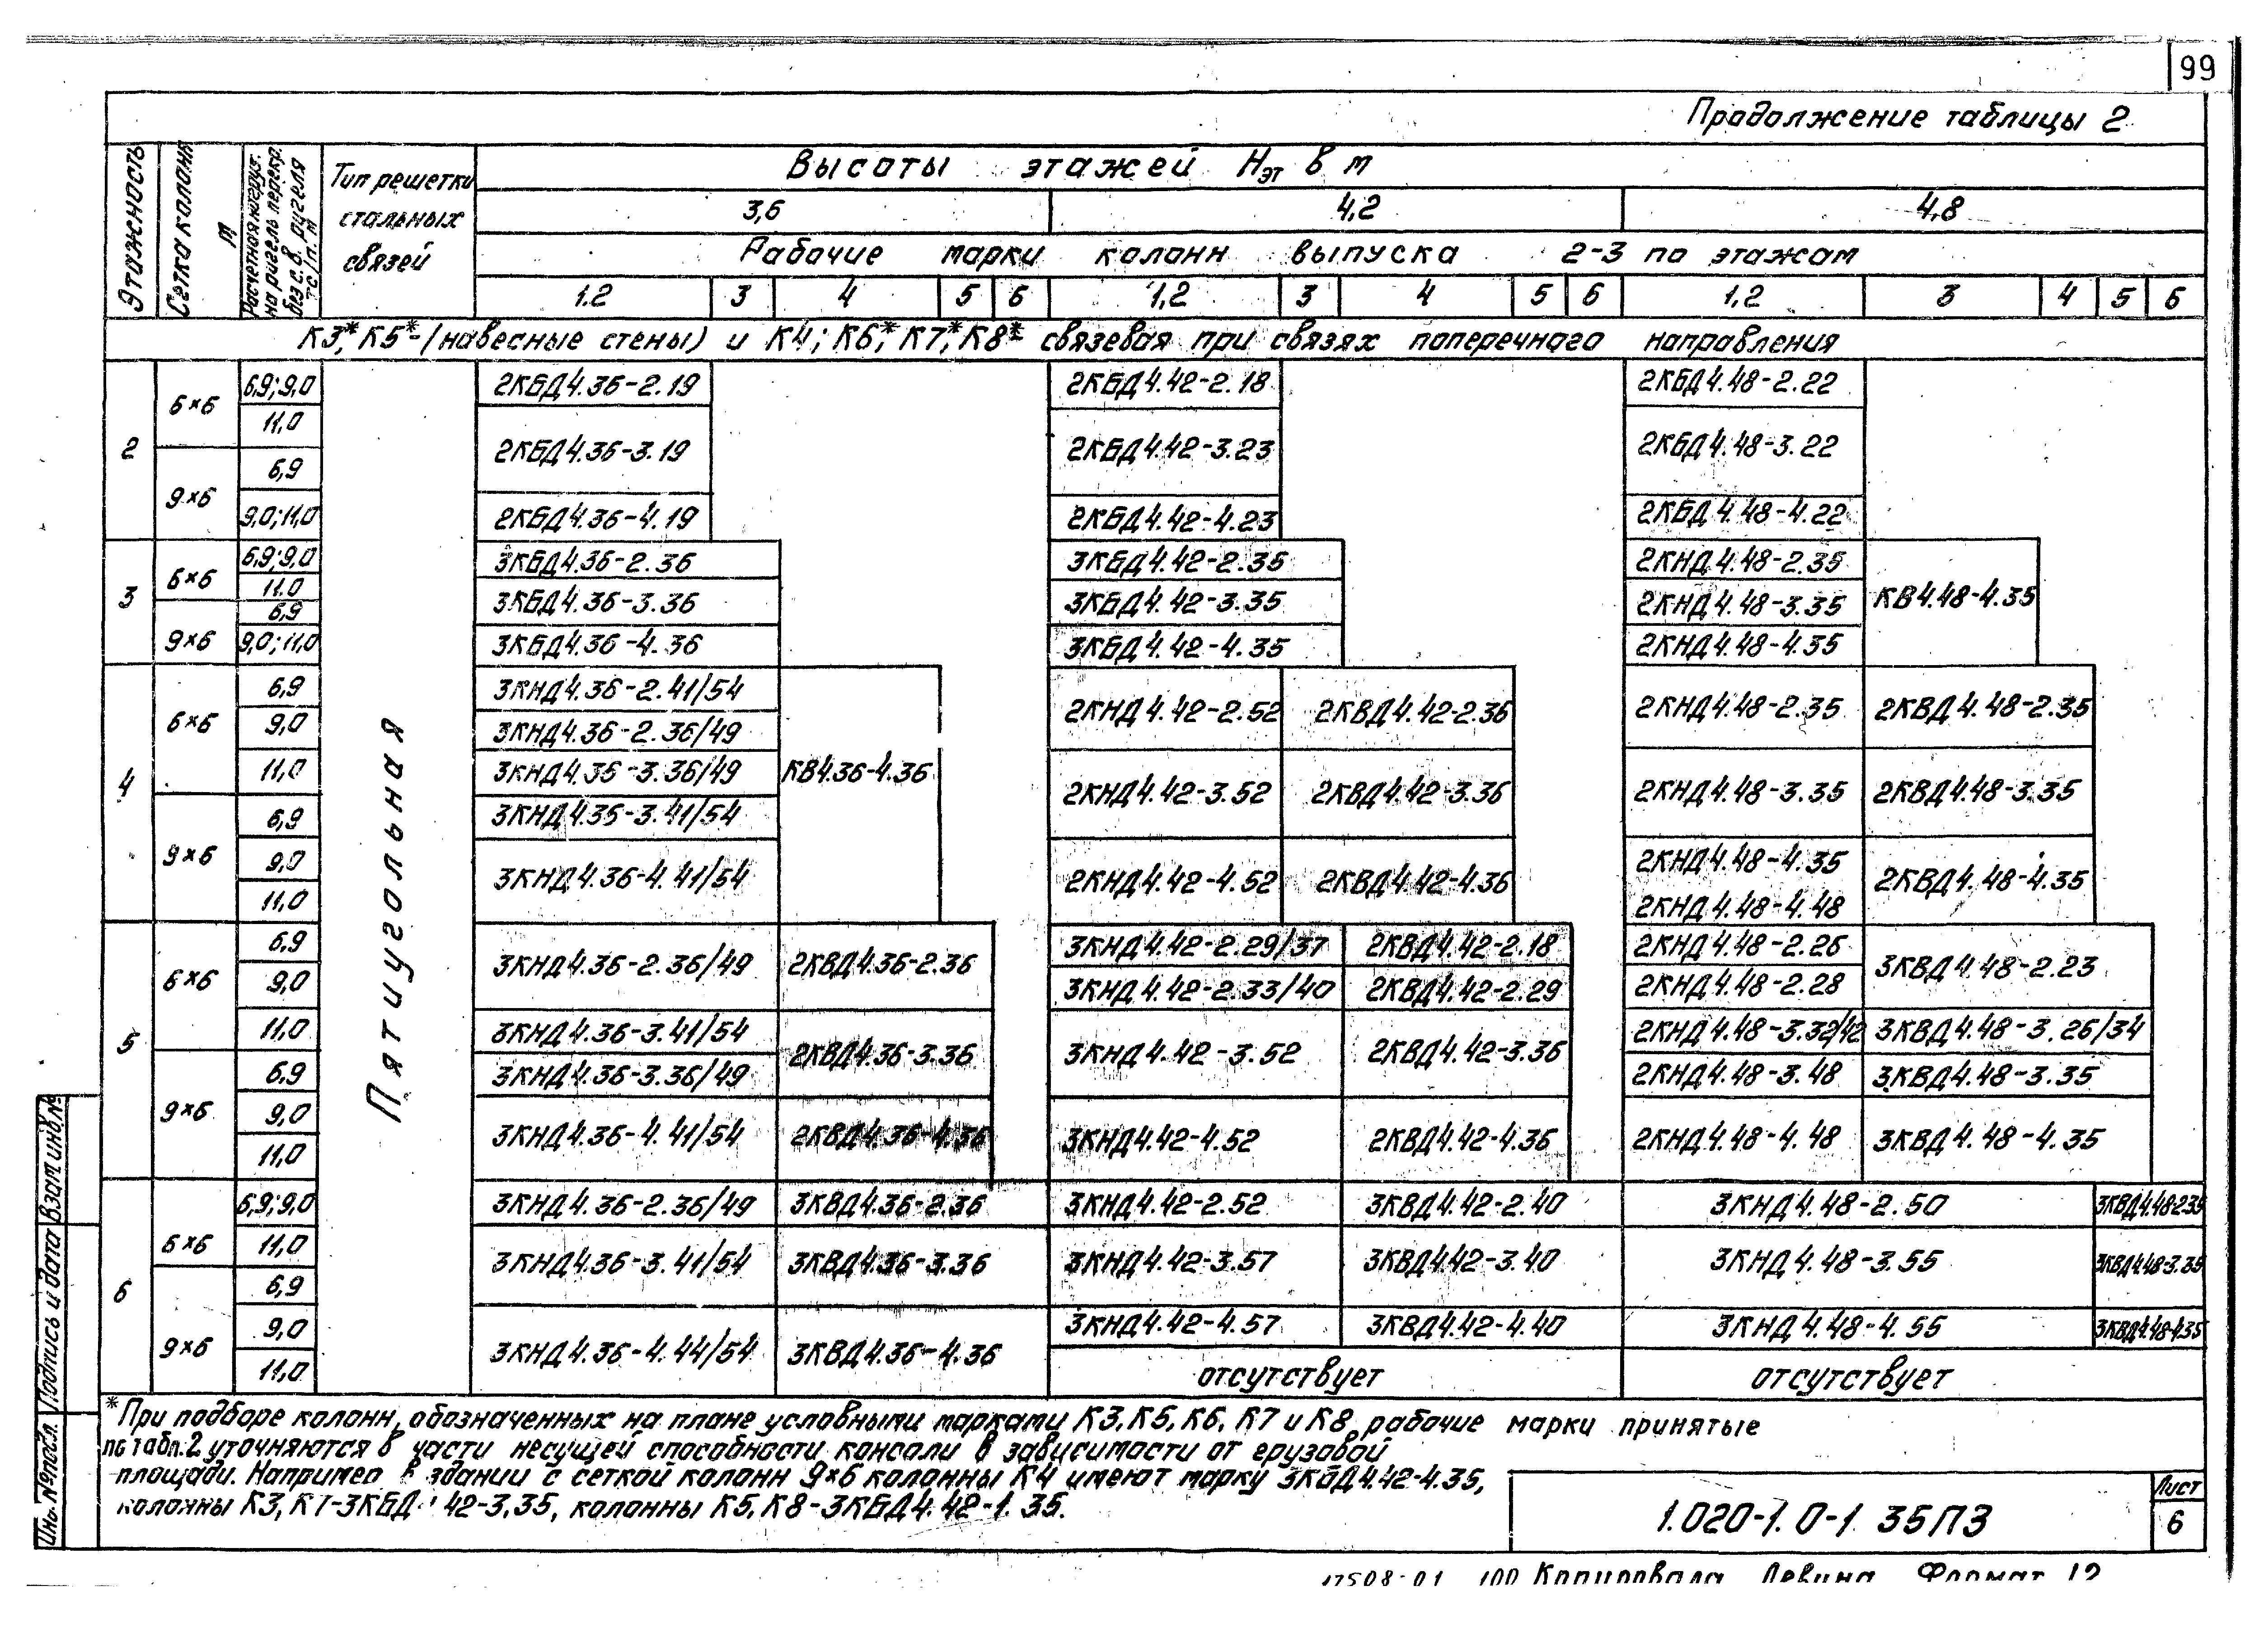 99
Продолжение таблицы 2
Этажность
Сетка колонн м
Расчетная нагруз. на ригель перекр. без с.в. ригеля тс/п.м
Тип решетки стальных связей
Высоты этажей Нэт в м
3,6 4,2 4,8
Рабочие марки колонн выпуска 2-3 по этажам
1.2 3 4 5 6 1,2 3 4 5 6 1,2 3 4 5 6
К3*, К5*-(навесные стены) и К4; К6*, К7*, К8*- связевая при связях поперечного направления
Пятиугольная
2 6×6 6,9; 9,0 2КБД4.36-2.19 2КБД4.42-2.18 2КБД4.48-2.22
11,0 2КБД4.36-3.19 2КБД4.42-3.23 2КБД4.48-3.22
9×6 6,9
9,0; 11,0 2КБД4.36-4.19 2КБД4.42-4.23 2КБД4.48-4.22
3 6×6 6,9; 9,0 3КБД4.36-2.36 3КБД4.42-2.35 2КНД4.48-2.35 КВ4.48-4.35
11.0 3КБД4.36-3.36 3КБД4.42-3.35 2КНД4.48-3.35
6,9
9×6 9,0; 11,0 3КБД4.36-4.36 3КБД4.42-4.35 2КНД4.48-4.35
4 6×6 6,9 3КНД4.36-2.41/54 КВ4.36-4.36 2КНД4.42-2.52 2КВД4.42-2.36 2КНД4.48-2.35 2КВД4.48-2.35
9,0 3КНД4.36-2.36/49
11,0 3КНД4.36-3.36/49 2КНД4.42-3.52 2КВД4.42-3.36 2КНД4.48-3.35 2КВД4.48-3.35
9×6 6,9 3КНД4.36-3.41/54
9,0 3КНД4.36-4.41/54 2КНД4.42-4.52 2КВД4.42-4.36 2КНД4.48-4.35 2КВД4.48-4.35
11,0 2КНД4.48-4.48
5 6×6 6,9 3КНД4.36-2.36/49 2КВД4.36-2.36 3КНД4.42-2.29/37 2КВД4.42-2.18 2КНД4.48-2.26 3КВД4.48-2.23
9,0 3КНД4.42-2.33/40 2КВД4.42-2.29 2КНД4.48-2.28
11,0 3КНД4.36-3.41/54 2КВД4.36-3.36 3КНД4.42-3.52 2КВД4.42-3.36 2КНД4.48-3.32/42 3КВД4.48-3.26/34
9×6 6,9 3КНД4.36-3.36/49 2КНД4.48-3.48 3КВД4.48-3.35
9,0 3КНД4.36-4.41/54 2КВД4.36-4.36 3КНД4.42-4.52 2КВД4.42-4.36 2КНД4.48-4.48 3КВД4.48-4.35
11,0
6 6×6 6,9; 9,0 3КНД4.36-2.36/49 3КВД4.36-2.36 3КНД4.42-2.52 3КВД4.42-2.40 3КНД4.48-2.50 3КВД4.48-2.35
11,0 3КНД4.36-3.41/54 3КВД4.36-3.36 3КНД4.42-3.57 3КВД4.42-3.40 3КНД4.48-3.55 3КВД4.48-3.35
9×6 6,9
9,0 3КНД4.36-4.44/54 3КВД4.36-4.36 3КНД4.42-4.57 3КВД4.42-4.40 3КНД4.48-4.55 3КВД4.48-4.35
11,0 отсутствует отсутствует
*При подборе колонн, обозначенных на плане условными марками К3, К5, К6, К7 и К8, рабочие марки принятые
по табл. 2 уточняются в части несущей способности консоли в зависимости от грузовой
площади. Например в здании с сеткой колонн 9×6 колонны К4 имеют марку 3КБД4.42-4.35,
колонны К3, К7-3КБД 42-3.35, колонны К5, К8-3КБД4.42-1.35.
Инв. № подл. Подпись и дата Взам. инв. №
1.020-1.0-1 35ПЗ
Лист
6
17508-01 100 Копировала Левина Формат 12